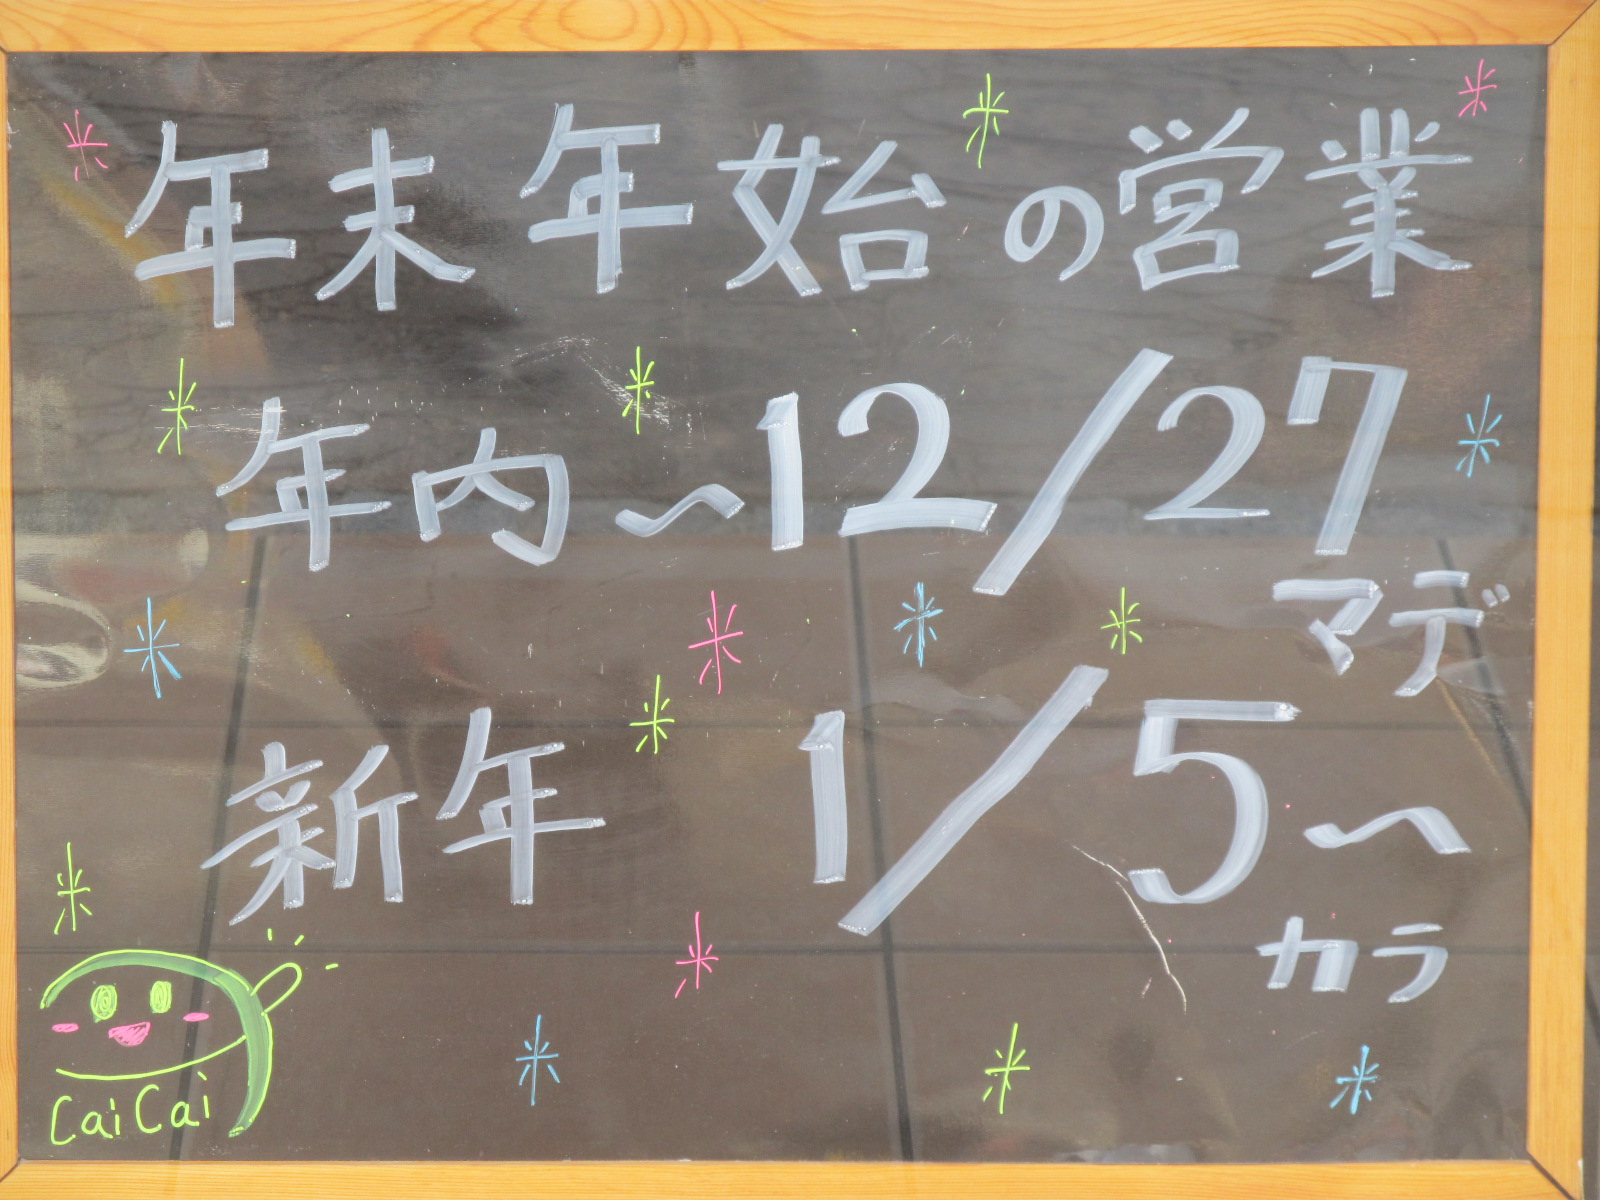 年末年始の営業
年内〜12/27
マデ
新年 1/5〜
カラ
CaiCai